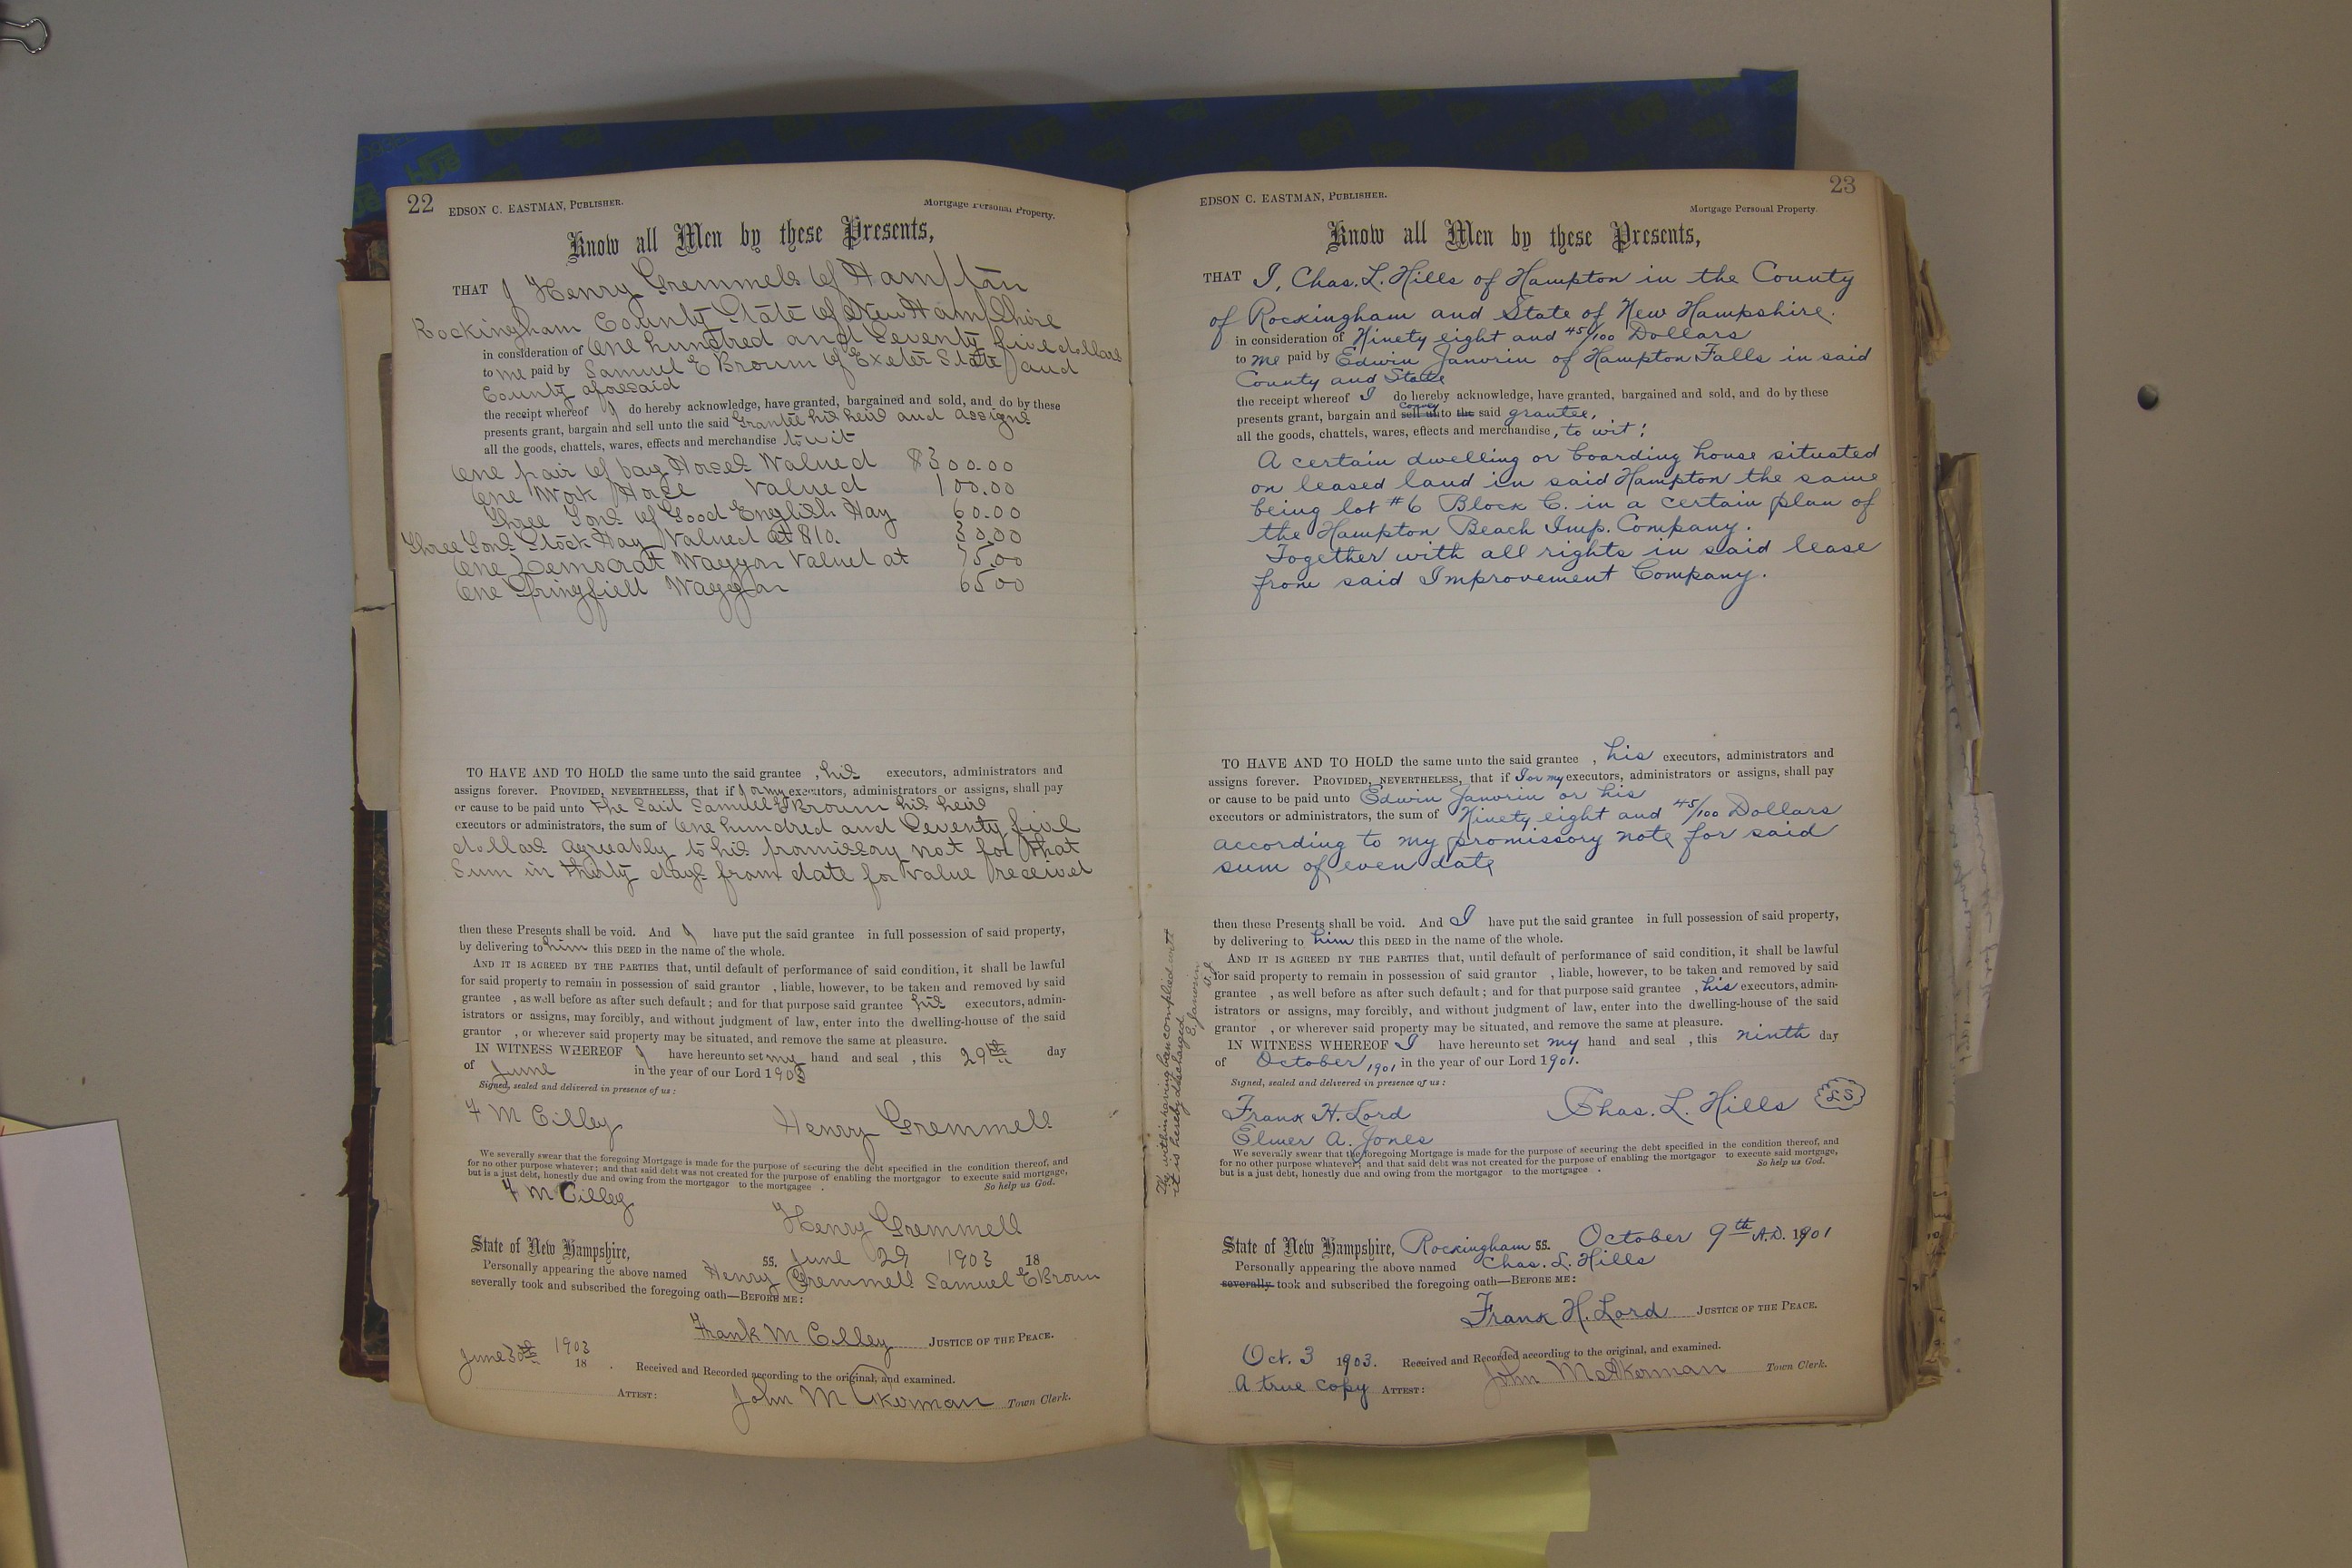 22 EDSON C. EASTMAN, PUBLISHER. Mortgage Personal Property.
Know all Men by these Presents,
THAT I Henry Gremmels of Hampton
Rockingham County State of New Hampshire
in consideration of One hundred and Seventy five dollars
to me paid by Samuel E Brown of Exeter State and
County aforesaid
the receipt whereof I do hereby acknowledge, have granted, bargained and sold, and do by these
presents grant, bargain and sell unto the said Grantee his heirs and assigns
all the goods, chattels, wares, effects and merchandise to wit
One pair of bay Horses Valued $300.00
One Work Horse Valued 100.00
Three Tons of Good English Hay 60.00
Three Tons Stock Hay Valued at $10. 30.00
One Democrat Waggon Valued at 75.00
One Springfiell Waggon 65 00
TO HAVE AND TO HOLD the same unto the said grantee , his executors, administrators and
assigns forever. PROVIDED, NEVERTHELESS, that if I or my executors, administrators or assigns, shall pay
or cause to be paid unto The Said Samuel E Brown his heirs
executors or administrators, the sum of One hundred and Seventy five
dollars agreeably to his promissory not for that
Sum in thirty days from date for value received
then these Presents shall be void. And I have put the said grantee in full possession of said property,
by delivering to him this DEED in the name of the whole.
AND IT IS AGREED BY THE PARTIES that, until default of performance of said condition, it shall be lawful
for said property to remain in possession of said grantor , liable, however, to be taken and removed by said
grantee , as well before as after such default; and for that purpose said grantee his executors, admin-
istrators or assigns, may forcibly, and without judgment of law, enter into the dwelling-house of the said
grantor , or wherever said property may be situated, and remove the same at pleasure.
IN WITNESS WHEREOF I have hereunto set my hand and seal , this 29th day
of June in the year of our Lord 1903
Signed, sealed and delivered in presence of us:
F M Cilley Henry Gremmels
We severally swear that the foregoing Mortgage is made for the purpose of securing the debt specified in the condition thereof, and
for no other purpose whatever; and that said debt was not created for the purpose of enabling the mortgagor to execute said mortgage,
but is a just debt, honestly due and owing from the mortgagor to the mortgagee . So help us God.
F M Cilley
Henry Gremmell
State of New Hampshire, ss. June 29 1903 18
Personally appearing the above named Henry Gremmels Samuel E Brown
severally took and subscribed the foregoing oath—BEFORE ME:
Frank M Cilley JUSTICE OF THE PEACE.
June 30th 1903 18 . Received and Recorded according to the original, and examined.
ATTEST: John M Akerman Town Clerk.
EDSON C. EASTMAN, PUBLISHER. 23
Mortgage Personal Property.
Know all Men by these Presents,
THAT I, Chas. L. Hills of Hampton in the County
of Rockingham and State of New Hampshire.
in consideration of Ninety eight and 45/100 Dollars
to me paid by Edwin Janvrin of Hampton Falls in said
County and State
the receipt whereof I do hereby acknowledge, have granted, bargained and sold, and do by these
presents grant, bargain and sell unto convey the said grantee,
all the goods, chattels, wares, effects and merchandise, to wit:
A certain dwelling or boarding house situated
on leased land in said Hampton the same
being lot #6 Block C. in a certain plan of
the Hampton Beach Imp. Company.
Together with all rights in said lease
from said Improvement Company.
TO HAVE AND TO HOLD the same unto the said grantee , his executors, administrators and
assigns forever. PROVIDED, NEVERTHELESS, that if I or my executors, administrators or assigns, shall pay
or cause to be paid unto Edwin Janvrin or his
executors or administrators, the sum of Ninety eight and 45/100 Dollars
according to my promissory note for said
sum of even date
then these Presents shall be void. And I have put the said grantee in full possession of said property,
by delivering to him this DEED in the name of the whole.
AND IT IS AGREED BY THE PARTIES that, until default of performance of said condition, it shall be lawful
for said property to remain in possession of said grantor , liable, however, to be taken and removed by said
grantee , as well before as after such default; and for that purpose said grantee , his executors, admin-
istrators or assigns, may forcibly, and without judgment of law, enter into the dwelling-house of the said
grantor , or wherever said property may be situated, and remove the same at pleasure.
IN WITNESS WHEREOF I have hereunto set my hand and seal , this ninth day
of October 1901 in the year of our Lord 1901.
Signed, sealed and delivered in presence of us:
Frank H. Lord Chas. L. Hills LS
Elmer A. Jones
We severally swear that the foregoing Mortgage is made for the purpose of securing the debt specified in the condition thereof, and
for no other purpose whatever; and that said debt was not created for the purpose of enabling the mortgagor to execute said mortgage,
but is a just debt, honestly due and owing from the mortgagor to the mortgagee . So help us God.
State of New Hampshire, Rockingham ss. October 9th A.D. 1901
Personally appearing the above named Chas. L. Hills
severally took and subscribed the foregoing oath—BEFORE ME:
Frank H. Lord JUSTICE OF THE PEACE.
Oct. 3 1903. Received and Recorded according to the original, and examined.
A true copy ATTEST: John M Akerman Town Clerk.
The within having been complied with
it is hereby discharged
E. Janvrin